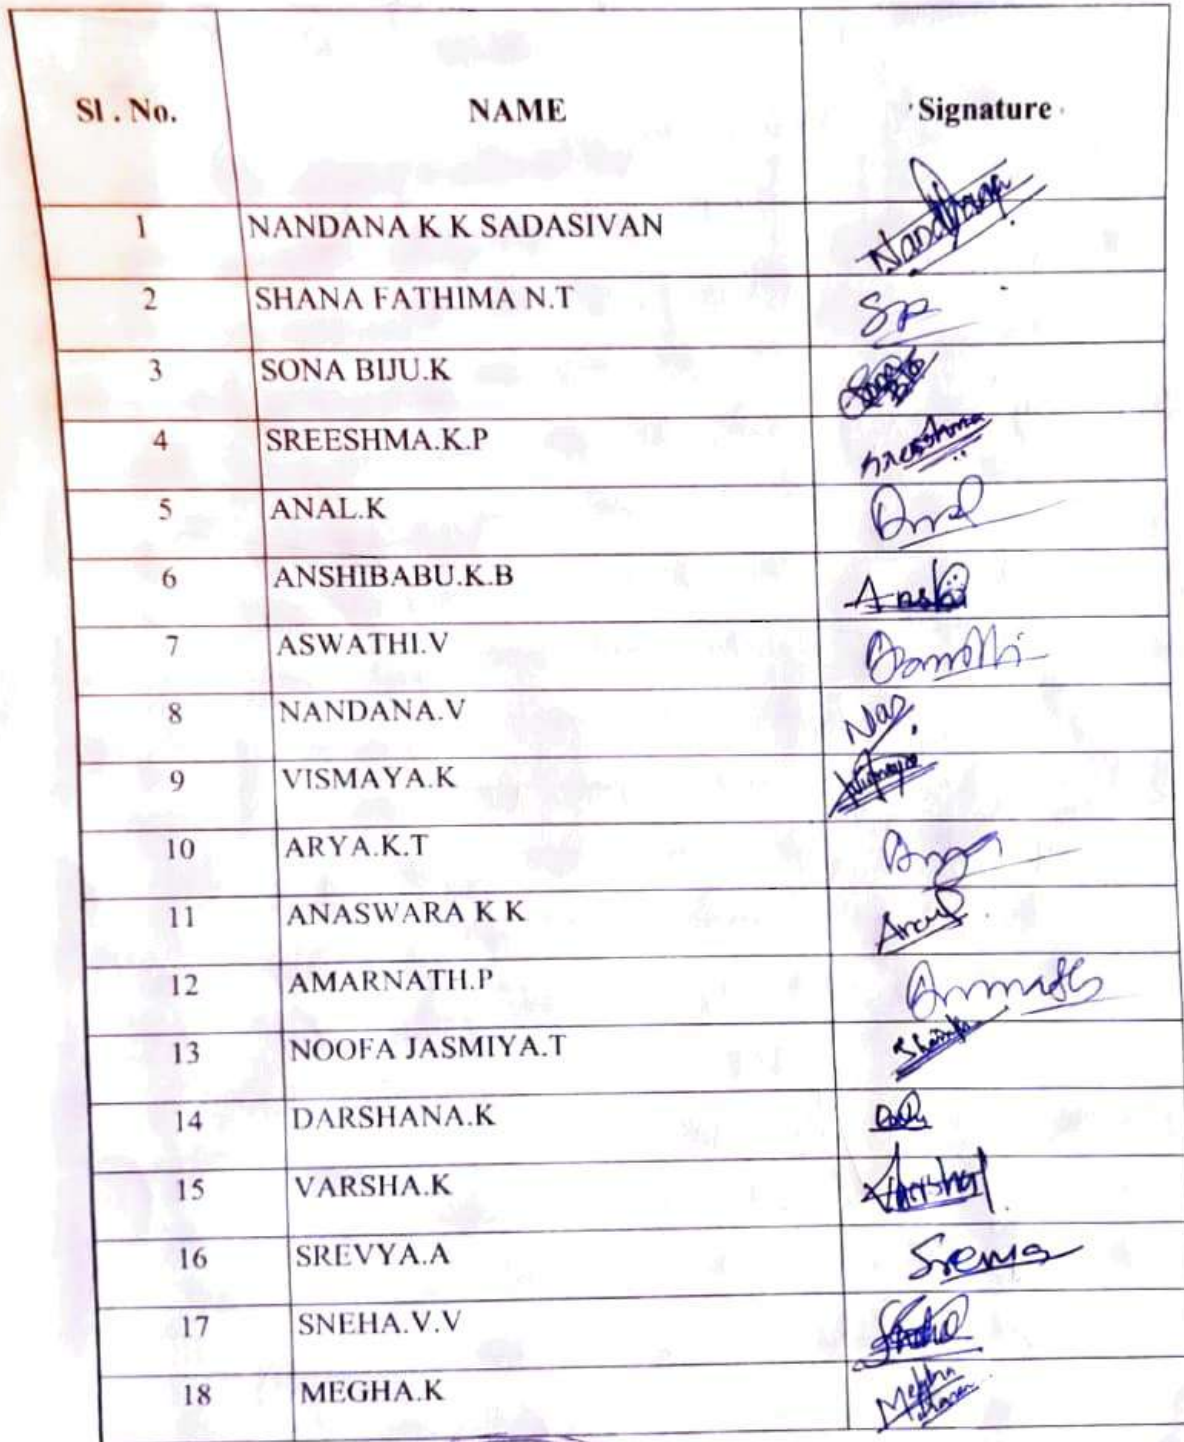 Sl . No. NAME Signature
1 NANDANA K K SADASIVAN Nandana
2 SHANA FATHIMA N.T
3 SONA BIJU.K
4 SREESHMA.K.P Sreeshma
5 ANAL.K
6 ANSHIBABU.K.B Anshi
7 ASWATHI.V
8 NANDANA.V
9 VISMAYA.K Vismaya
10 ARYA.K.T
11 ANASWARA K K
12 AMARNATH.P
13 NOOFA JASMIYA.T
14 DARSHANA.K
15 VARSHA.K Varsha
16 SREVYA.A
17 SNEHA.V.V
18 MEGHA.K Megha